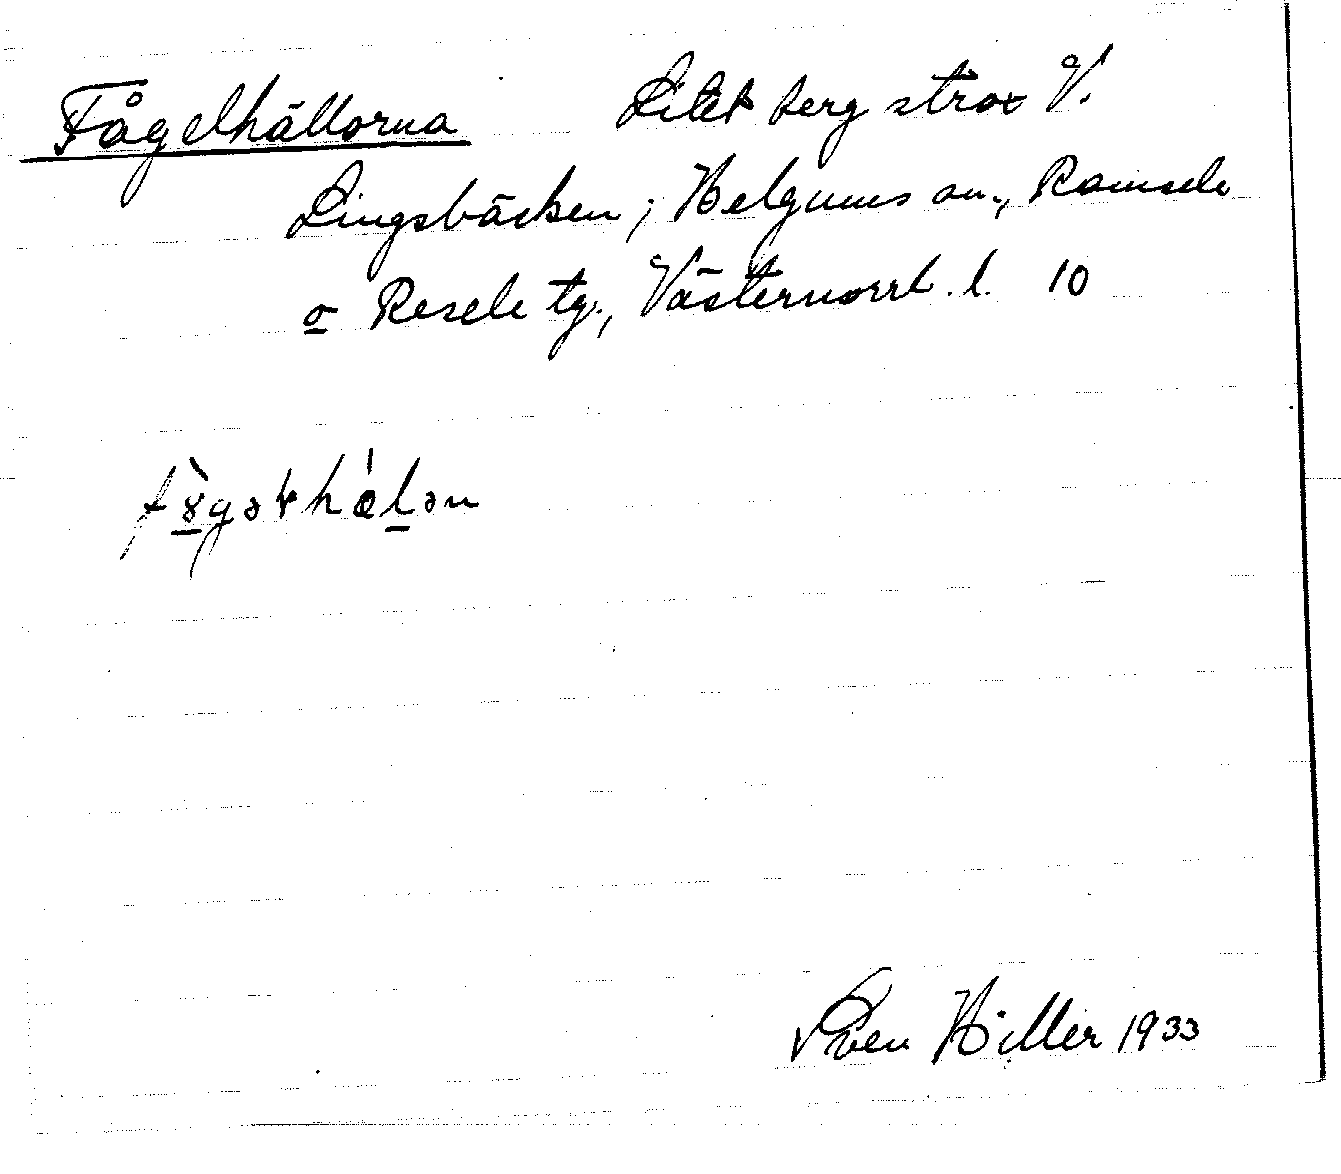 Fågelhällorna Litet berg strax V.
Lingsbäcken; Helgums sn., Ramsele
o Resele tg., Västernorrl. l. 10
Sven Hiller 1933